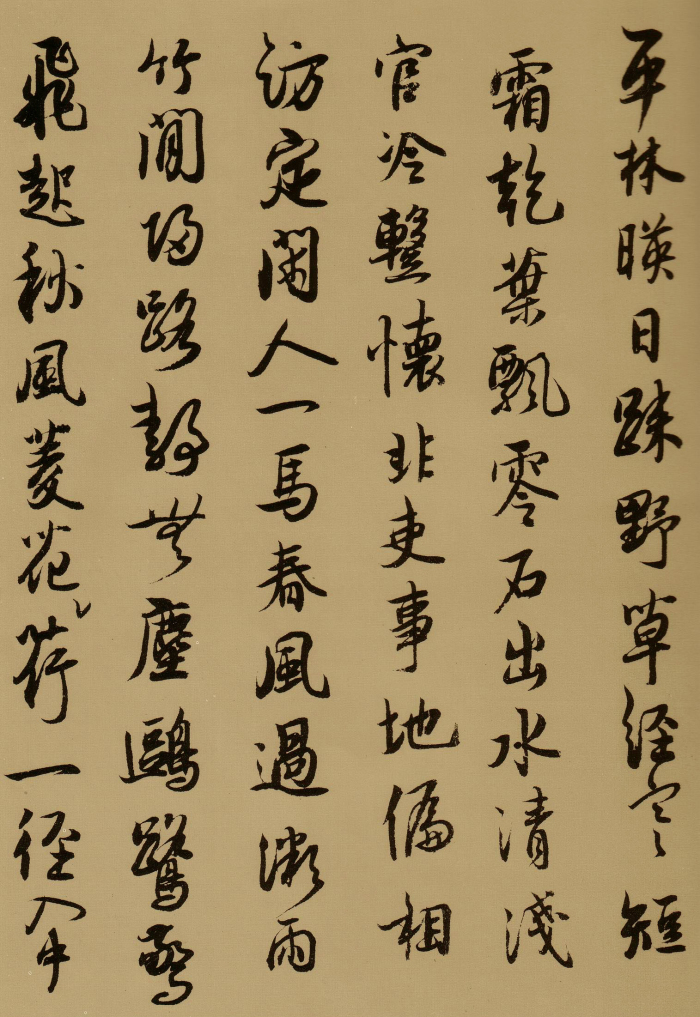 平林暎日踈野草経寒短
霜乾葉飄零石出水清淺
官冷繫懷非吏事地偏相
訪定閑人一馬春風過微雨
竹間歸路静無塵鷗鷺驚
飛起秋風菱花荷一徑入中